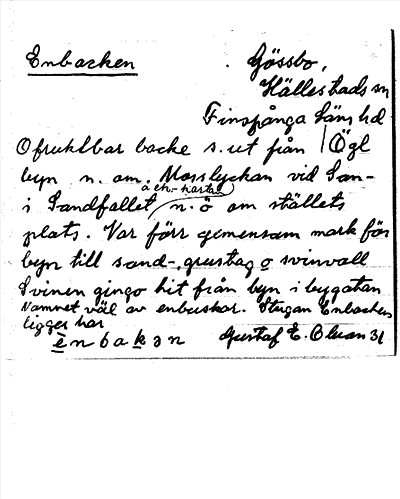 Enbacken Gössbo,
Hällestads sn
Finspånga läns hd
Ofruktbar backe s. ut från Ögl
byn n. om. Mosslyckan vid San-
å ek.-kartan
i Sandfallet n. ö om ställets
plats. Var förr gemensam mark för
byn till sand-, grustag o svinvall
Svinen gingo hit från byn i bygatan
Namnet väl av enbuskar. Stugan Enbacken
ligger här
ènbakən Gustaf E. Olsson 31